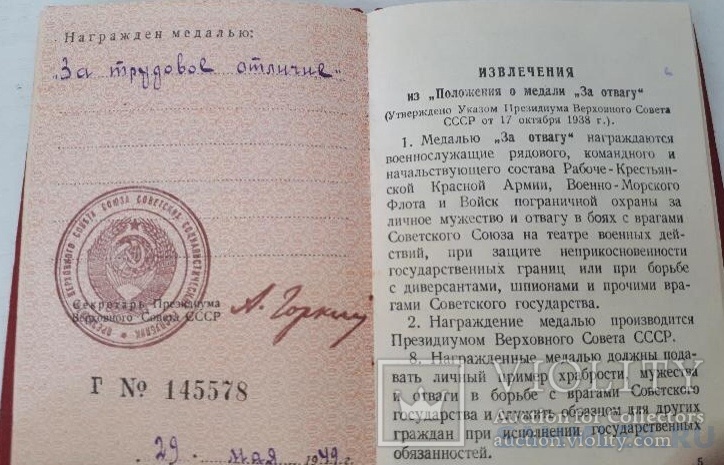 Награжден медалью:
„За трудовое отличие"
ПРЕЗИДИУМ ВЕРХОВНОГО СОВЕТА СОЮЗА СОВЕТСКИХ СОЦИАЛИСТИЧЕСКИХ РЕСПУБЛИК
Секретарь Президиума
Верховного Совета СССР
А. Горкин
Г № 145578
29 мая 1949 г.
ИЗВЛЕЧЕНИЯ
из „Положения о медали „За отвагу"
(Утверждено Указом Президиума Верховного Совета
СССР от 17 октября 1938 г.).
1. Медалью „За отвагу" награждаются
военнослужащие рядового, командного и
начальствующего состава Рабоче-Крестьян-
ской Красной Армии, Военно-Морского
Флота и Войск пограничной охраны за
личное мужество и отвагу в боях с врагами
Советского Союза на театре военных дей-
ствий, при защите неприкосновенности
государственных границ или при борьбе
с диверсантами, шпионами и прочими вра-
гами Советского государства.
2. Награждение медалью производится
Президиумом Верховного Совета СССР.
8. Награжденные медалью должны пода-
вать личный пример храбрости, мужества
и отваги в борьбе с врагами Советского
государства и служить образцом для других
граждан при исполнении государственных
обязанностей.
5
VIOLITY
Auction for Collectors
auction.violity.com